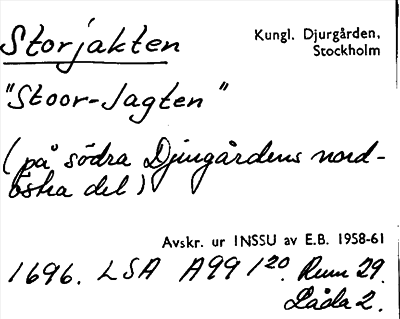 Storjakten
Kungl. Djurgården,
Stockholm
"Stoor-Jagten"
(på södra Djurgårdens nord-
östra del)
Avskr. ur INSSU av E.B. 1958-61
1696. LSA A99 1²⁰. Rum 29.
Låda 2.